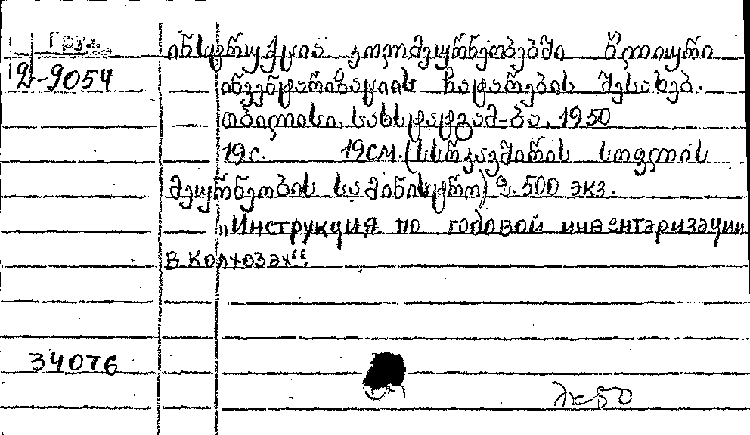 Груз.
2-9054
ინსტრუქცია კოლმეურნეობებში წლიური
ინვენტარიზაციის ჩატარების შესახებ.
თბილისი, სახსტატგამ-ბა, 1950
19с. 19см. (სსრკავშირის სოფლის
მეურნეობის სამინისტრო) 2.500 экз.
„Инструкция по годовой инвентаризации
в колхозах“.
34076